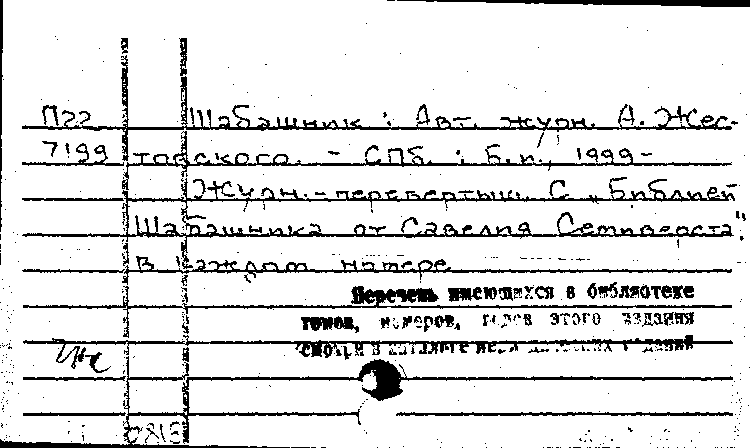 П22 Шабашник : Авт. журн. А. Жес-
7199 товского. - СПб. : Б.и., 1999-
Журн.-перевертыш. С „Библией
Шабашника от Савелия Семиверста"
в каждом номере
Перечень имеющихся в библиотеке
томов, номеров, годов этого издания
смотри в каталоге